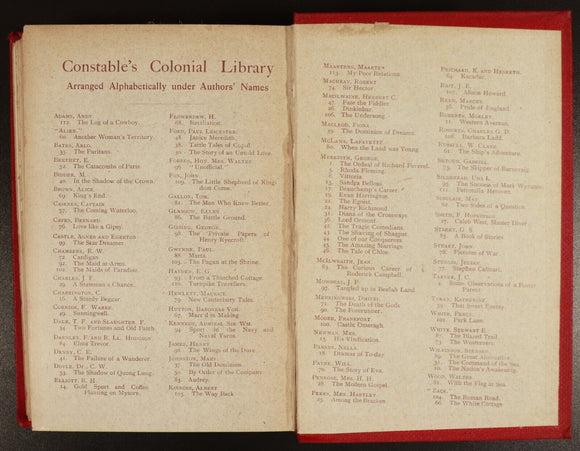 Constable's Colonial Library
Arranged Alphabetically under Authors' Names
ADAMS, ANDY
112. The Log of a Cowboy.
"ALIEN."
66. Another Woman's Territory.
BATES, ARLO.
35. The Puritans.
BERTHET, E.
52. The Catacombs of Paris
BODKIN, M.
40. In the Shadow of the Crown.
BROWN, ALICE.
69. King's End.
CASSERS, CAPTAIN.
37. The Coming Waterloo.
CAPES, BERNARD.
76. Love like a Gipsy.
CASTLE, AGNES AND EGERTON
99. The Star Dreamer.
CHAMBERS, R. W.
72. Cardigan
92. The Maid-at-Arms.
102. The Maids of Paradise.
CHARLES, J. F.
29. A Statesman's Chance.
CHARRINGTON, C.
16. A Sturdy Beggar
CORNISH, F. WARRE.
49. Sunningwell.
DALE, T. F. AND SLAUGHTER, F.
34. Two Fortunes and Old Patch.
DANIELL, F. AND R. LL. HODGSON
84. Elma Trevor.
DENNY, C. E.
41. The Failure of a Wanderer.
DOYLE, DR. C. W.
53. The Shadow of Quong Lung.
ELLIOTT, R. H.
14. Gold Sport and Coffee
Planting in Mysore.
FLOWERDEW, H.
68. Retaliation.
FORD, PAUL LEICESTER.
48. Janice Meredith.
38. Tattle Tales of Cupid.
50. The Story of an Untold Love.
FORBES, HON. MRS. WALTER
96. Unofficial.
FOX, JOHN.
109. The Little Shepherd of Kingdom
Come.
GALLON, TOM.
82. The Man Who Knew Better.
GLASGOW, ELLEN
86. The Battle Ground.
GISSING, GEORGE.
98. The Private Papers of
Henry Ryecroft.
GWYNNE, PAUL
88. Marta.
103. The Pagan at the Shrine.
HAYDEN, E. G.
93. From a Thatched Cottage.
110. Turnpike Travellers.
HEWLETT, MAURICE.
79. New Canterbury Tales.
HUTTEN, BARONESS VON.
67. Marr'd in Making
KENNEDY, ADMIRAL SIR WM.
54. Sport in the Navy and
Naval Yarns.
JAMES, HENRY
90. The Wings of the Dove.
JOHNSTON, MARY.
37. The Old Dominion.
50. By Order of the Company
83. Audrey.
KINROSS, ALBERT
105. The Way Back
MAARTENS, MAARTEN
113. My Poor Relations.
MACHRAY, ROBERT
74. Sir Hector
MACILWAINE, HERBERT C.
47. Fate the Fiddler
26. Dinkinbar.
106. The Undersong
MACLEOD, FIONA
39. The Dominion of Dreams.
M'LAWS, LAFAYETTE.
80. When the Land was Young
MEREDITH, GEORGE.
1. The Ordeal of Richard Feverel.
5. Rhoda Fleming.
8. Vittoria
13. Sandra Belloni
17. Beauchamp's Career
19. Evan Harrington
21. The Egoist.
24. Harry Richmond
31. Diana of the Crossways
36. Lord Ormont
42. The Tragic Comedians
43. The Shaving of Shagpat
44. One of our Conquerors
45. The Amazing Marriage
46. The Tale of Chloe.
MCILWRAITH, JEAN
83. The Curious Career of
Roderick Campbell.
MOWBRAY, J. P.
97. Tangled up in Beulah Land
MEREJKOWSKI, DMITRI.
71. The Death of the Gods
90. The Forerunner.
MOORE, FRANKFORT.
100. Castle Omeragh.
NEWMAN, MRS.
23. His Vindication.
PARKIN, NELLA.
18. Dramas of To-day
PAYNE, WILL.
70. The Story of Eva.
PENROSE, MRS. H. H.
28. The Modern Gospel.
PERKS, MRS. HARTLEY
25. Among the Bracken
PRICHARD, K. AND HESKETH.
64. Karadac.
RAIT, J. E.
107. Alison Howard.
REED, MARCUS.
36. Pride of England
ROBERTS, MORLEY
11. Western Avernus.
ROBERTS, CHARLES G. D.
101. Barbara Ladd.
RUSSELL, W. CLARK
61. The Ship's Adventure.
SETOUN, GABRIEL
111. The Skipper of Barncraig.
SILBERRAD, UNA L.
95. The Success of Mark Wyngate
111. Petronilla Heroven.
SINCLAIR, MAY
62. Two Sides of a Question
SMITH, F. HOPKINSON
27. Caleb West, Master Diver
STREET, G. S.
85. A Book of Stories
STUART, JOHN
78. Pictures of War.
STURGIS, JULIAN.
77. Stephen Calinari.
TARVER, J. C.
4. Some Observations of a Foster
Parent
TYBAL, KATHERINE.
60. That Sweet Enemy.
WHITE, PERCY.
12. Park Lane.
WHITE, STEWART E.
91. The Blazed Trail.
73. The Westerners
WILKINSON, SPENSER.
89. The Great Alternative
32. The Command of the Sea.
10. The Nation's Awakening.
WOOD, WALTER.
81. With the Flag at Sea.
"ZACK."
104. The Roman Road.
66. The White Cottage